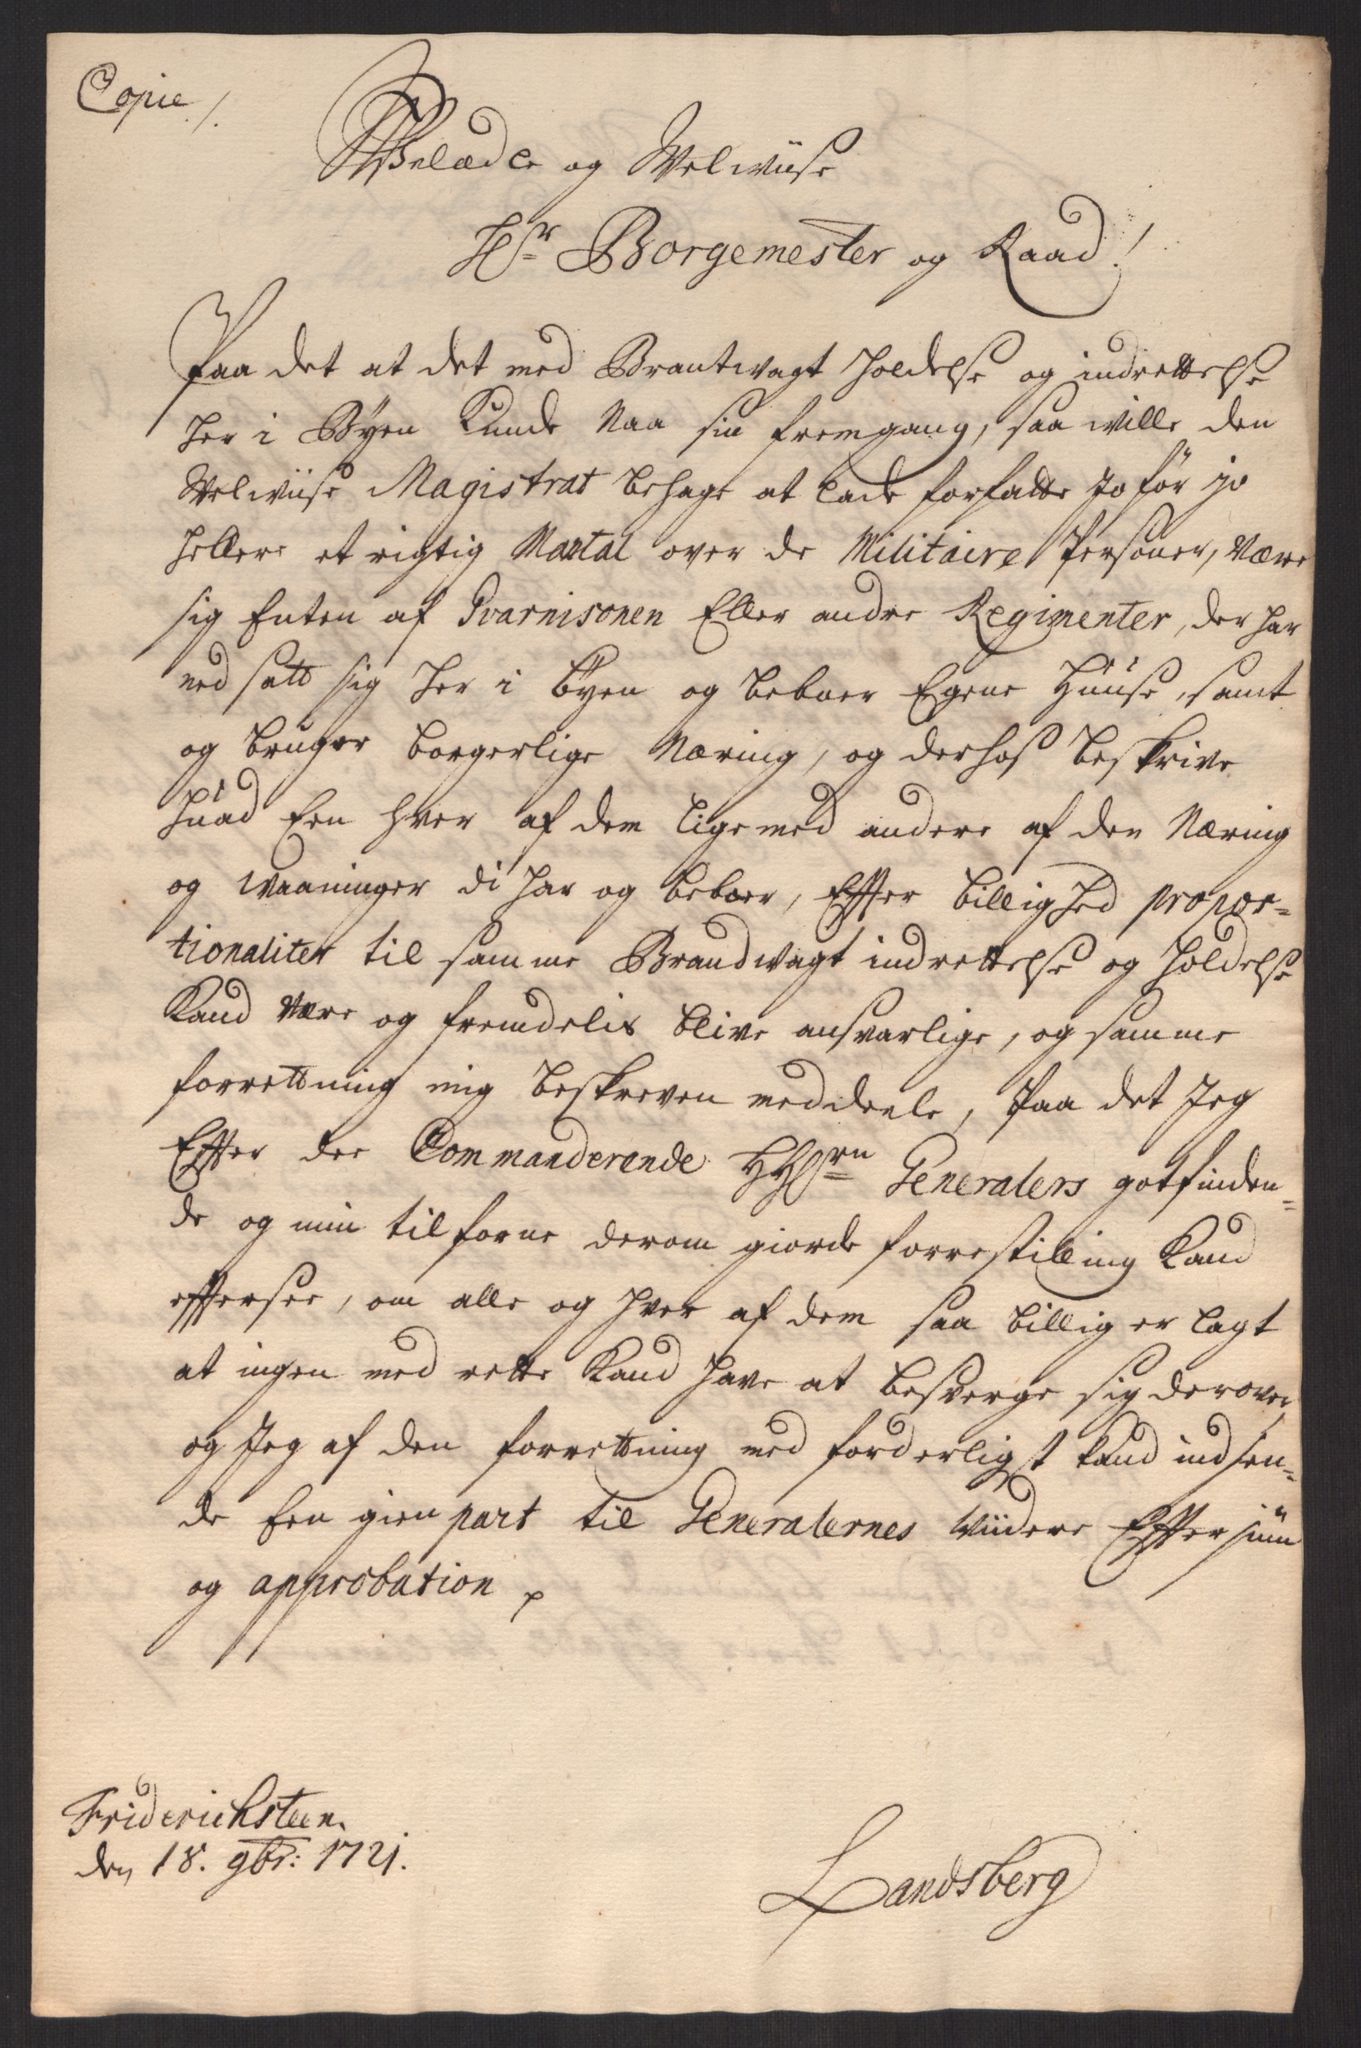 Copie /.
Welædle og Welwiise
Hr Borgemester og Raad!
Paa det at det med Brantwagt holdelse og indrettelse
her i Byen Kunde Naa sin fremgang, saa wille den
Welwiise Magistrat behage at lade forfatte Jo før jo
hellere et rigtig Mantal over de Militaire Personer, være
sig Enten af Gvarnisonen Eller andre Regimenter, der har
ned satt sig her i Byen og beboer Egene Huuse, samt
og bruger borgerlige Næring, og derhos beskrive
huad Een hver af dem lige med andere af den Næring
og waaninger di har og beboer, Effter billighed propor-
tionaliter til samme Brandwagt indrettelse og holdelse
Kand være og fremdelis blive ansvarlige, og samme
forrettning mig beskreven meddeele, Paa det Jeg
Effter der Commanderende HHrn Generalers gotfinden-
de og min tilforne derom giorde forrestilling Kand
effersee, om alle og hver af dem saa billig er lagt
at ingen med rette Kand have at besverge sig derover
og Jeg af den forrettning med forderligst kand indsen-
de Een gien part til Generalernes Viidere Efftersiun
og approbation
Friderichsteen.
den 18. 9br: 1721.
Landsberg